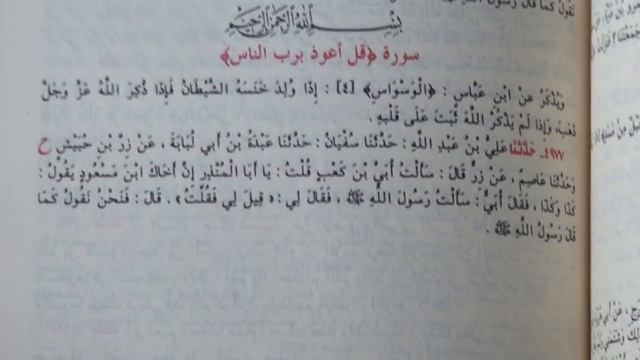 نقول كما قال رسول الله
بسم الله الرحمن الرحيم
سورة ﴿قل أعوذ برب الناس﴾
وَيُذْكَرُ عَنْ ابْنِ عَبَّاسٍ : ﴿الْوَسْوَاسِ﴾ [٤] : إِذَا وُلِدَ خَنَسَهُ الشَّيْطَانُ فَإِذَا ذُكِرَ اللَّهُ عَزَّ وَجَلَّ
ذَهَبَ، وَإِذَا لَمْ يَذْكُرِ اللَّهَ ثَبَتَ عَلَى قَلْبِهِ .
٤٩٧٧ـ حَدَّثَنَا عَلِيُّ بْنُ عَبْدِ اللَّهِ : حَدَّثَنَا سُفْيَانُ : حَدَّثَنَا عَبْدَةُ بْنُ أَبِي لُبَابَةَ ، عَنْ زِرِّ بْنِ حُبَيْشٍ ح
وَحَدَّثَنَا عَاصِمٌ ، عَنْ زِرٍّ قَالَ : سَأَلْتُ أُبَيَّ بْنَ كَعْبٍ قُلْتُ : يَا أَبَا الْمُنْذِرِ إِنَّ أَخَاكَ ابْنَ مَسْعُودٍ يَقُولُ :
كَذَا وَكَذَا ، فَقَالَ أُبَيٌّ : سَأَلْتُ رَسُولَ اللَّهِ ﷺ ، فَقَالَ لِي : « قِيلَ لِي فَقُلْتُ » . قَالَ : فَنَحْنُ نَقُولُ كَمَا
قَالَ رَسُولُ اللَّهِ ﷺ .